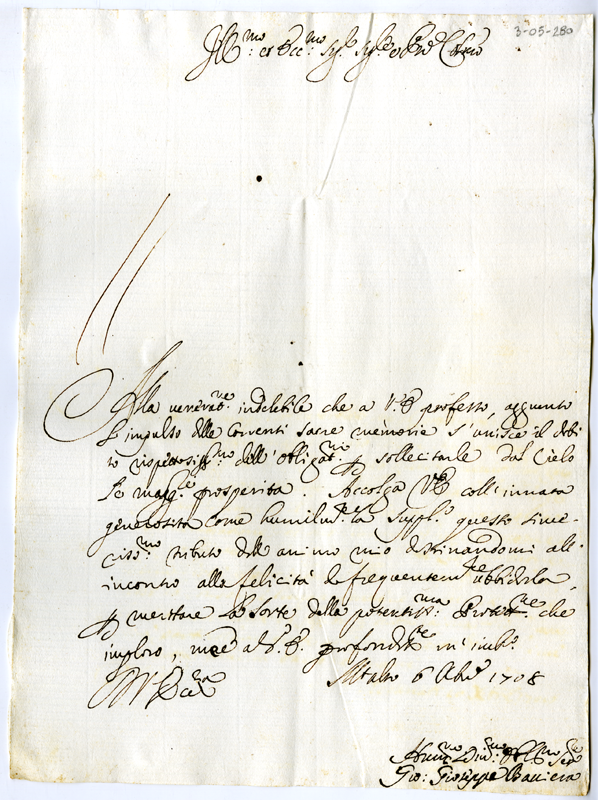 3-05-280
Ill.mo et Ecc.mo Sig.r Sig.r e P.rone Col.mo
Alla venerat.ne indelebile che a V.E professo, aggiunto
l'impulso delle correnti sacre memorie s'unisce il debi
to rispettosiss.mo dell'obligat.ni p sollecitarle dal Cielo
le magg.ri prosperità. Accolga V.E coll'innata
generosità come humilm.te la suppl.o questo since
riss.mo tributo dell animo mio destinandomi all'
incontro alla felicità di frequentem.te ubbidirla,
p meritare la sorte della potentiss.ma Protett.ne che
imploro, me a V.E. profondam.te m'inch.o
Di V Ecc.za
6 1708
Hum.mo Div.mo Obl.mo Ser.re
Gio: Gioseppe